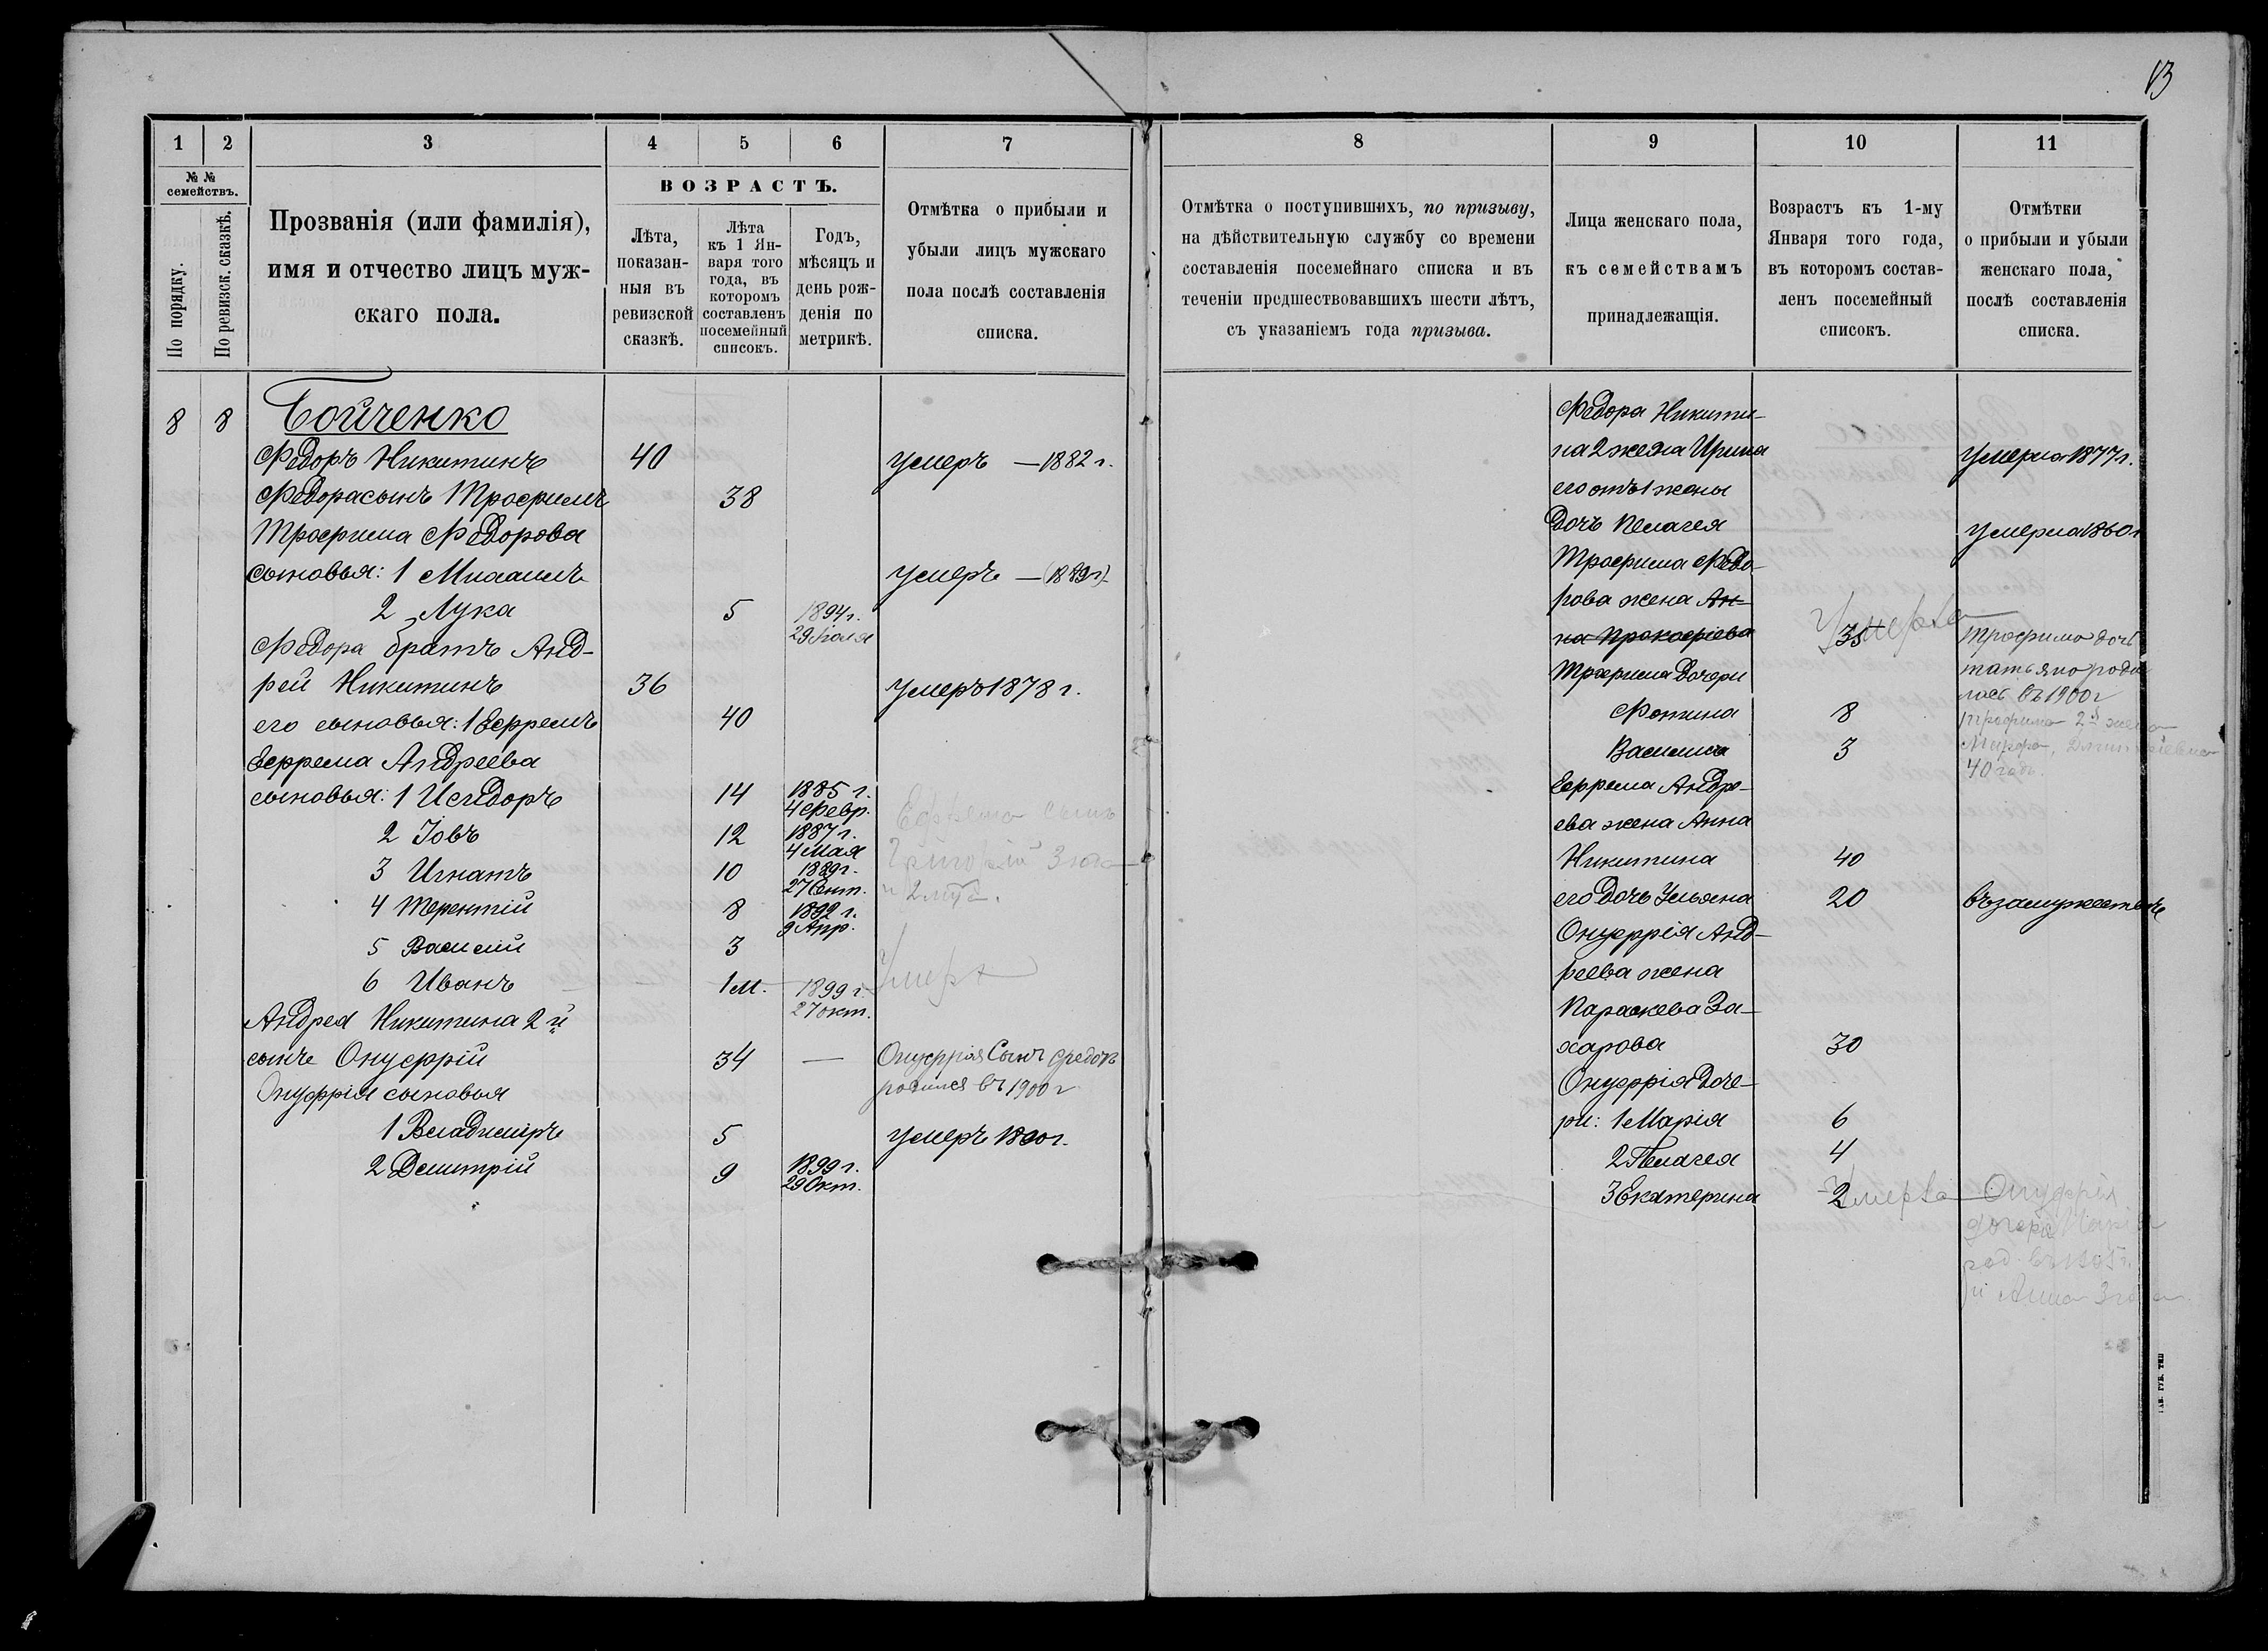 13
1
2
3
4
5
6
7
8
9
10
11
№ №
семействъ.
По порядку.
По ревизск. сказкѣ.
Прозванія (или фамилія),
имя и отчество лицъ муж-
скаго пола.
ВОЗРАСТЪ.
Лѣта,
показан-
ныя въ
ревизской
сказкѣ.
Лѣта
къ 1 Ян-
варя того
года, въ
которомъ
составленъ
посемейный
списокъ.
Годъ,
мѣсяцъ и
день рож-
денія по
метрикѣ.
Отмѣтка о прибыли и
убыли лицъ мужскаго
пола послѣ составленія
списка.
Отмѣтка о поступившихъ, по призыву,
на дѣйствительную службу со времени
составленія посемейнаго списка и въ
теченіи предшествовавшихъ шести лѣтъ,
съ указаніемъ года призыва.
Лица женскаго пола,
къ семействамъ
принадлежащія.
Возрастъ къ 1-му
Января того года,
въ которомъ состав-
ленъ посемейный
списокъ.
Отмѣтки
о прибыли и убыли
женскаго пола,
послѣ составленія
списка.
8 8 Бойченко
Федоръ Никитинъ 40 умеръ — 1882 г.
Федора сынъ Трофимъ 38
Трофима Федорова
сыновья: 1 умеръ
2 Лука 5 1894 г.
29
Федора братъ Анд-
рей Никитинъ 36 умеръ 1878 г.
его сыновья: 1 Ефремъ 40
Ефрема Андреева
сыновья: 1 Исидоръ 14 1885 г.
4 Февр.
2 Іовъ 12 1887 г.
4 Мая
3 Игнатъ 10 1889 г.
27 Сент.
4 Терентій 8 1892 г.
9 Апр.
5 Василій 3
6 Иванъ 1 м. 1899 г.
27 окт.
Ефрема сынъ
Григорій 3 года
и 2 мѣс.
Умеръ
Андрея Никитина 2й
сынъ Онуфрій 34 — Онуфрія Сынъ Федотъ
Онуфрія сыновья родился въ 1900 г
1 Владиміръ 5 умеръ 1900 г.
2 Дмитрій 9 1899 г.
29 Окт.
Федора Никити-
на 2 жена Ирина умерла 1877 г.
его отъ 1 жены
дочь Пелагея умерла 1860 г
Трофима Федо-
рова жена Ан-
на Прокофіева 35 Умерла
Трофима дочери
Фотина 8
Василиса 3
Трофима дочь
татьяна роди
лась въ 1900 г
Трофима 2я жена
Марфа, Дмитріевна
40 годъ.
Ефрема Андре-
ева жена Анна
Никитина 40
его дочь Ульяна 20 въ замужествѣ
Онуфрія Анд-
реева жена
Параскева За-
харова 30
Онуфрія доче-
ри: 1 Марія 6
2 Пелагея 4
3 Екатерина 2 Умерла
Онуфрія
дочери Марія
род.
и Анна 3 года